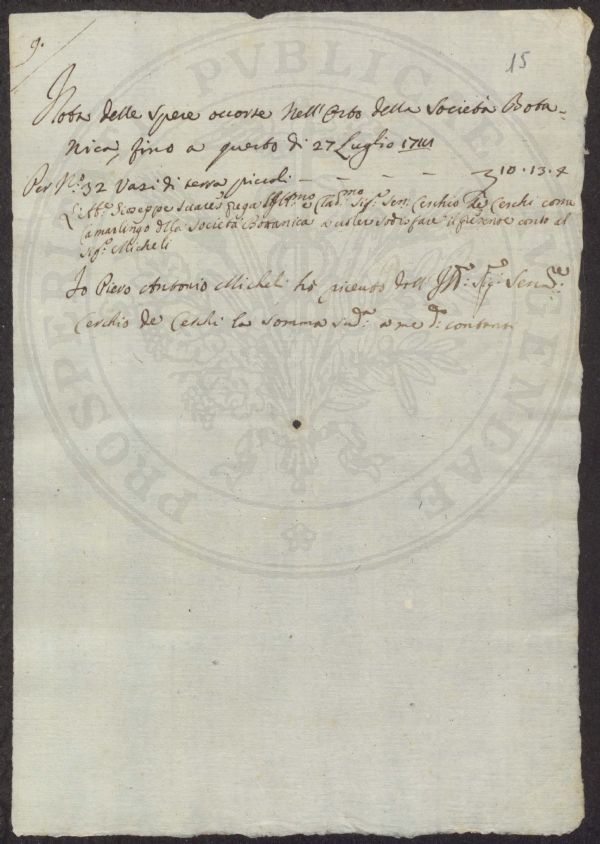 9.
15
Nota delle Spese occorse nell'Orto della Società Bota-
nica, fino a questo di 27 Luglio
Per N.º 32 Vasi di terra piccoli - - - - - 10.13.4
Suares prega Ill.mo e Cla.mo Sig.r Sen.r Cerchio de Cerchi come
Camarlingo della Società Botanica a voler sodisfare il presente conto al
Sig.r Micheli
Io Piero Antonio Micheli ho ricevuto dall' Ill.mo Sig.r Sen.re
Cerchio de Cerchi la somma sud.a a me d.o contanti
PROSPERITATI PUBLICAE AUGENDAE